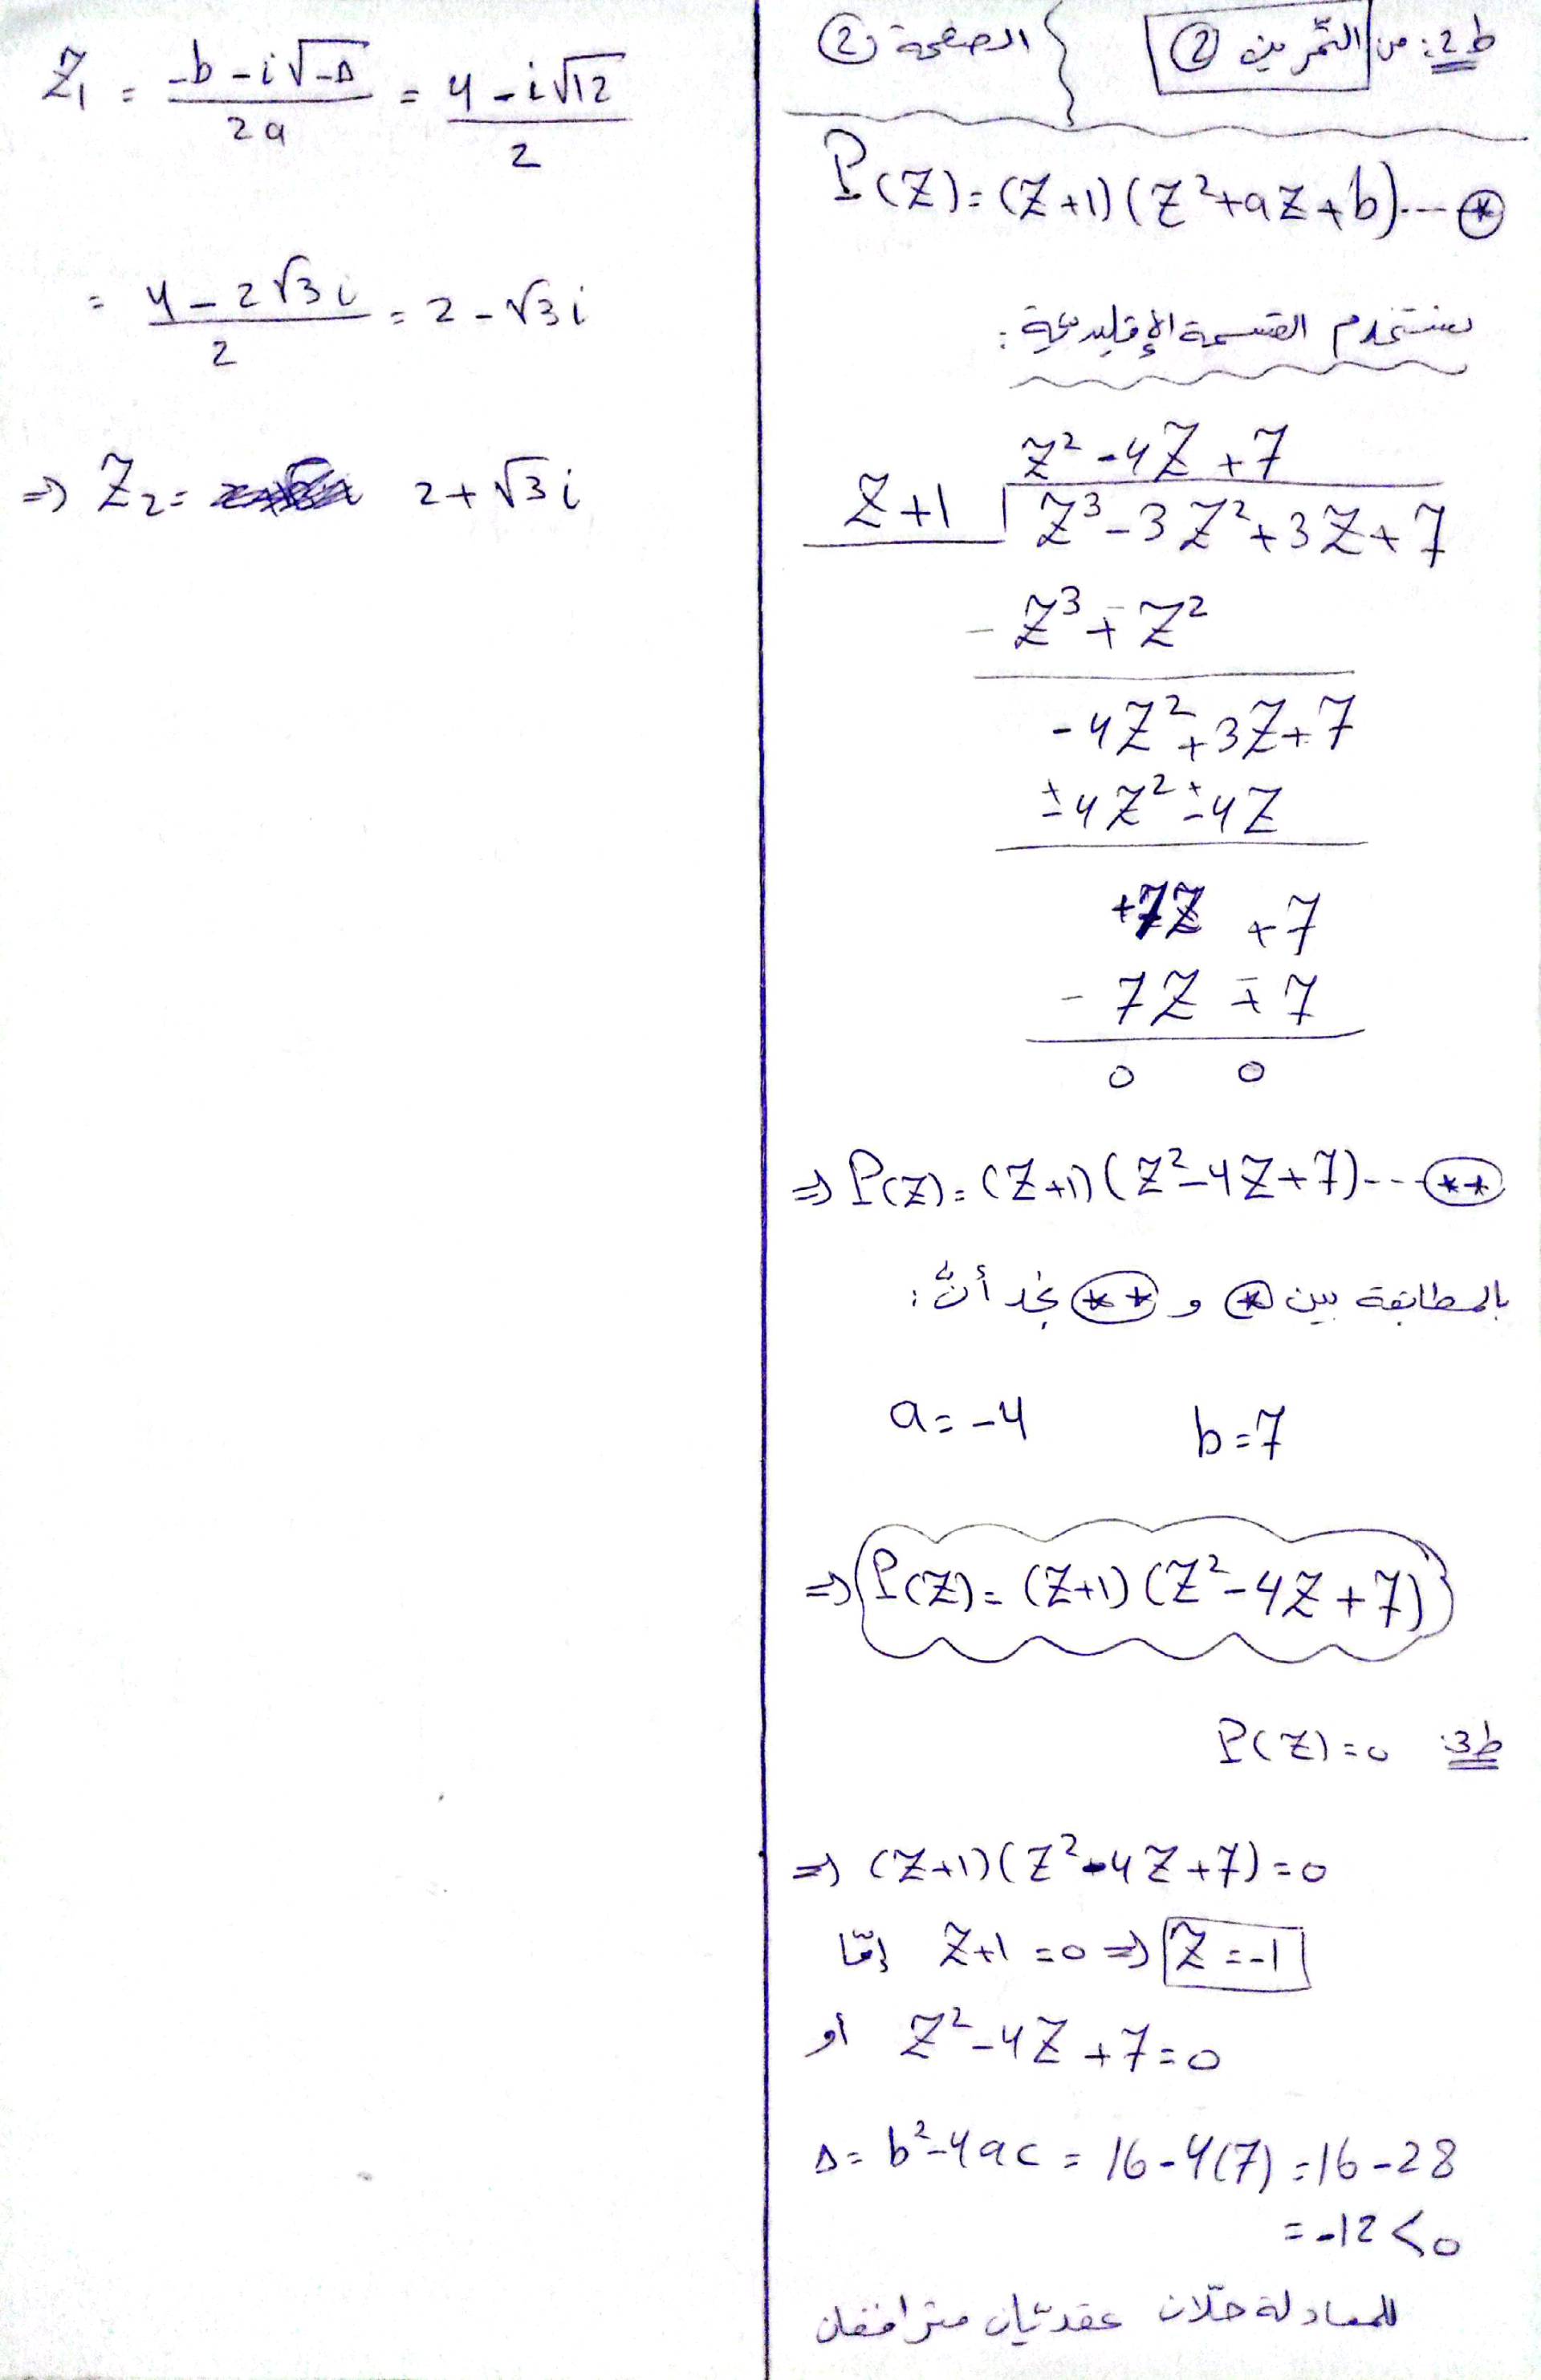 ط2: من التّمرين ② } الصفحة ②
P(Z) = (Z+1)(Z²+aZ+b)... ⊛
سنستخدم القسمة الإقليدية:
Z² - 4Z + 7
Z+1 | Z³ - 3Z² + 3Z + 7
- Z³ ∓ Z²
-4Z² + 3Z + 7
± 4Z² ± 4Z
+7Z + 7
- 7Z ∓ 7
0 0
⇒ P(Z) = (Z+1)(Z² - 4Z + 7)... (**)
بالمطابقة بين (*) و (**) نجد أنَّ:
a = -4 b = 7
⇒ P(Z) = (Z+1)(Z² - 4Z + 7)
ط3: P(Z) = 0
⇒ (Z+1)(Z² - 4Z + 7) = 0
إمّا Z+1 = 0 ⇒ Z = -1
أو Z² - 4Z + 7 = 0
Δ = b² - 4ac = 16 - 4(7) = 16 - 28
= -12 < 0
للمعادلة حلّان عقديّان مترافقان
Z₁ = (-b - i√-Δ)/2a = (4 - i√12)/2
= (4 - 2√3 i)/2 = 2 - √3 i
⇒ Z₂ = 2 + √3 i